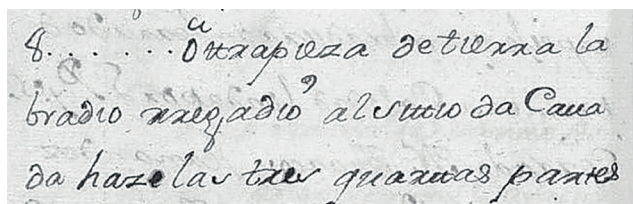 8.......Ottra pieza de tierra la
bradio rregadio al sittio da Caua
da haze las tres quarttas parttes